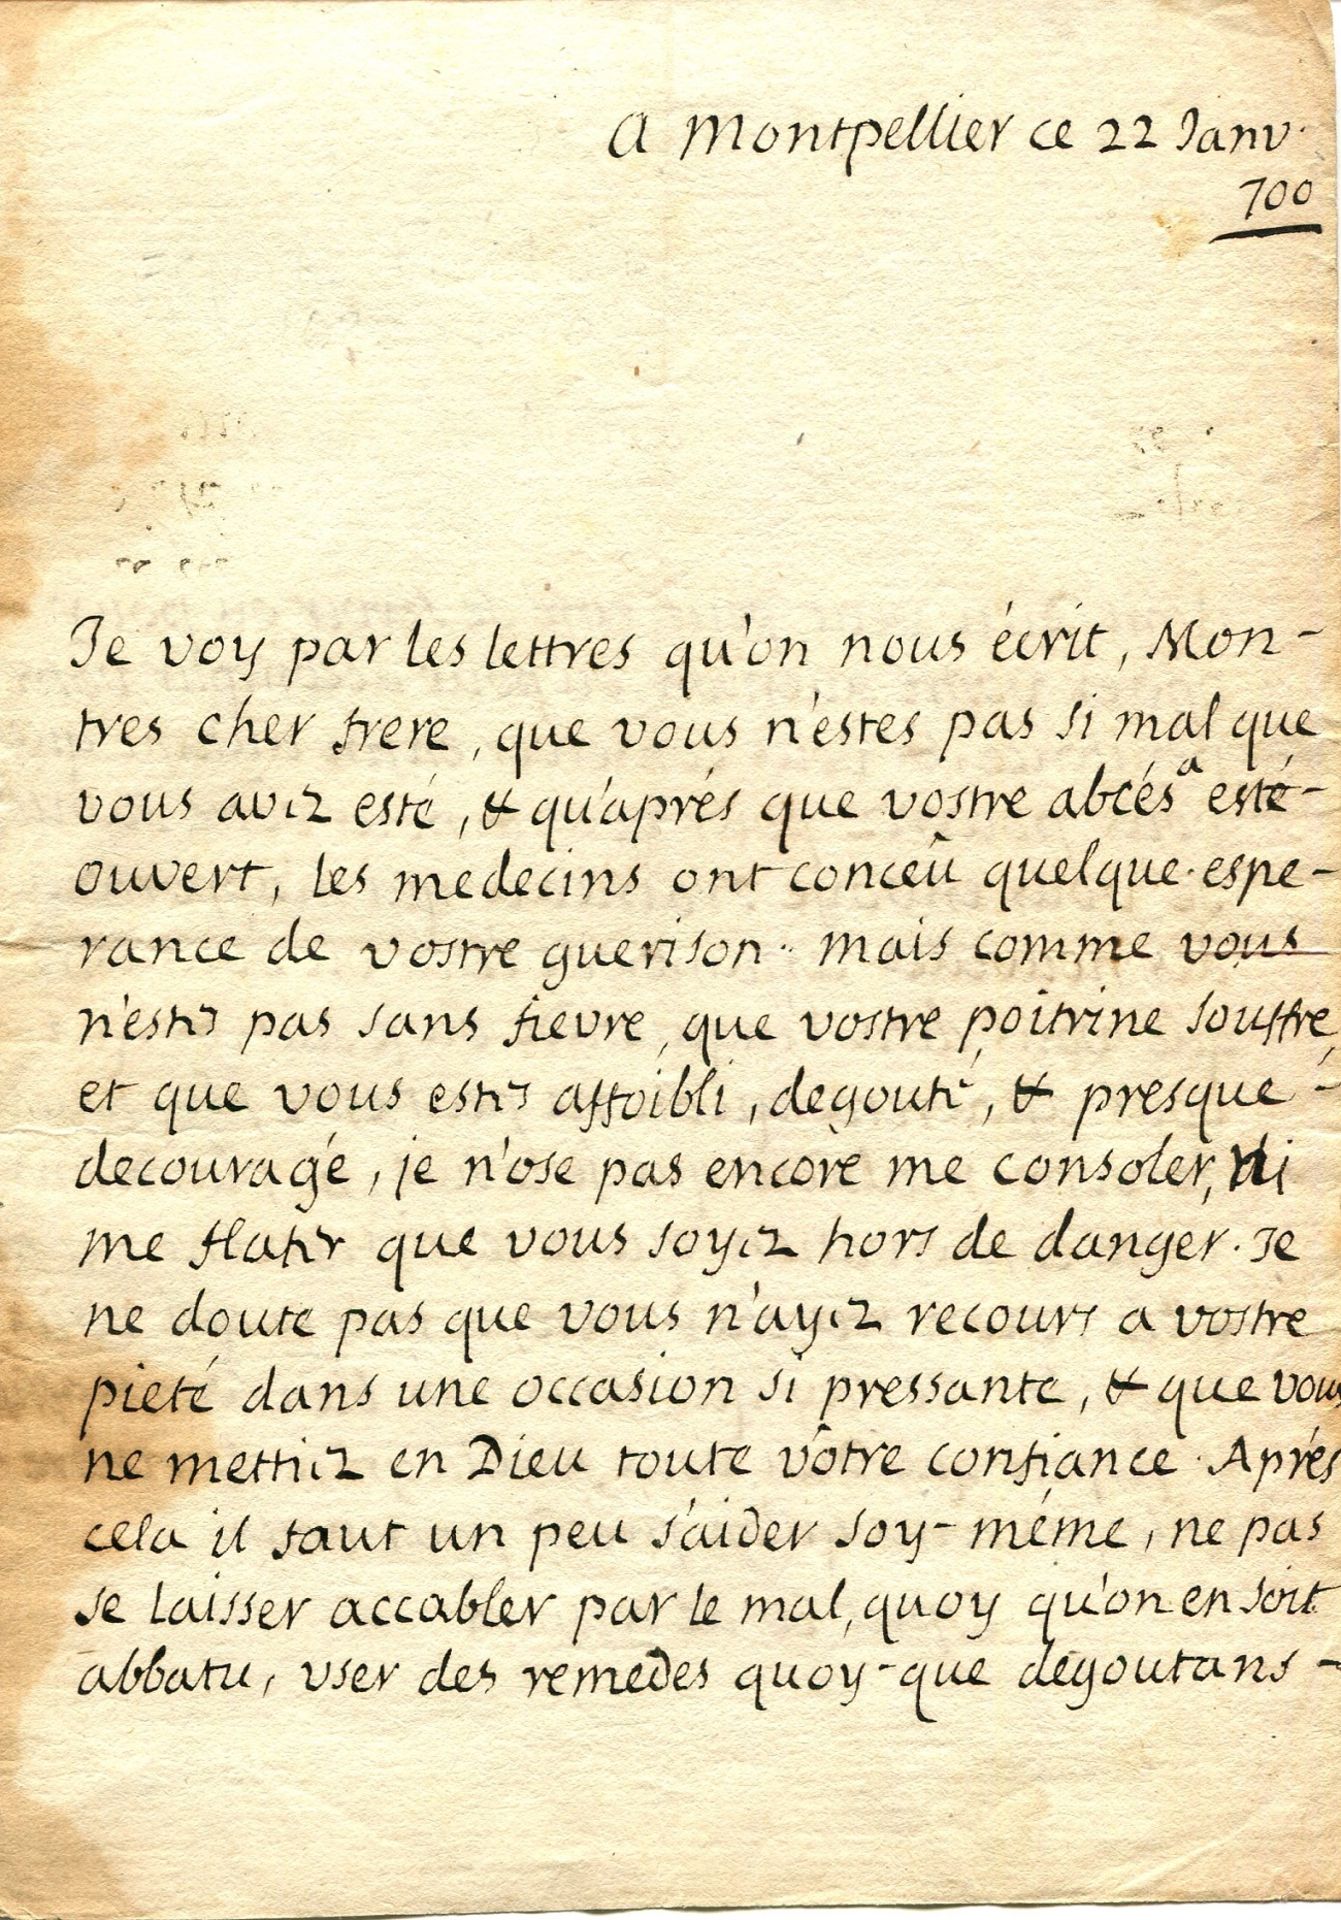 A Montpellier ce 22 Janv.
700
Je voy par les lettres qu'on nous écrit, Mon-
tres cher frere, que vous n'estes pas si mal que
vous aviez esté, & qu'aprés que vostre abcés a esté-
ouvert, les medecins ont conceû quelque espe-
rance de vostre guerison. mais comme vous
n'estes pas sans fievre, que vostre poitrine souffre,
et que vous estes affoibli, degouté, & presque-
decouragé, je n'ose pas encore me consoler, ni
me flater que vous soyiez hors de danger. Je
ne doute pas que vous n'ayiez recours a vostre
pieté dans une occasion si pressante, & que vous
ne mettiez en Dieu toute vôtre confiance. Aprés
cela il faut un peu s'aider soy-méme, ne pas
se laisser accabler par le mal, quoy qu'on en soit
abbatu, vser des remedes quoy-que degoutans-